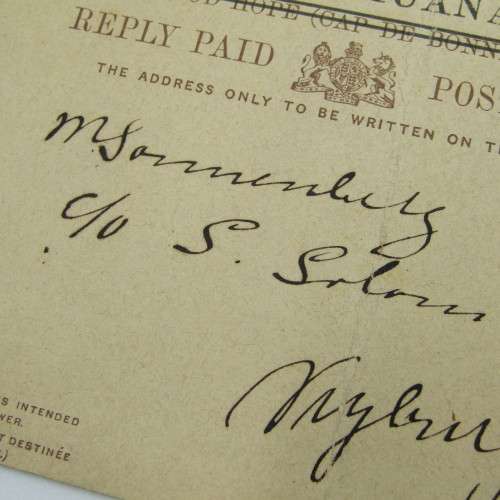 UANA
D HOPE (CAP DE BONNE
REPLY PAID POS
THE ADDRESS ONLY TO BE WRITTEN ON TH
M Sonnenberg
c/o S. Solom
Vrybu
S INTENDED
WER.
T DESTINÉE
.)